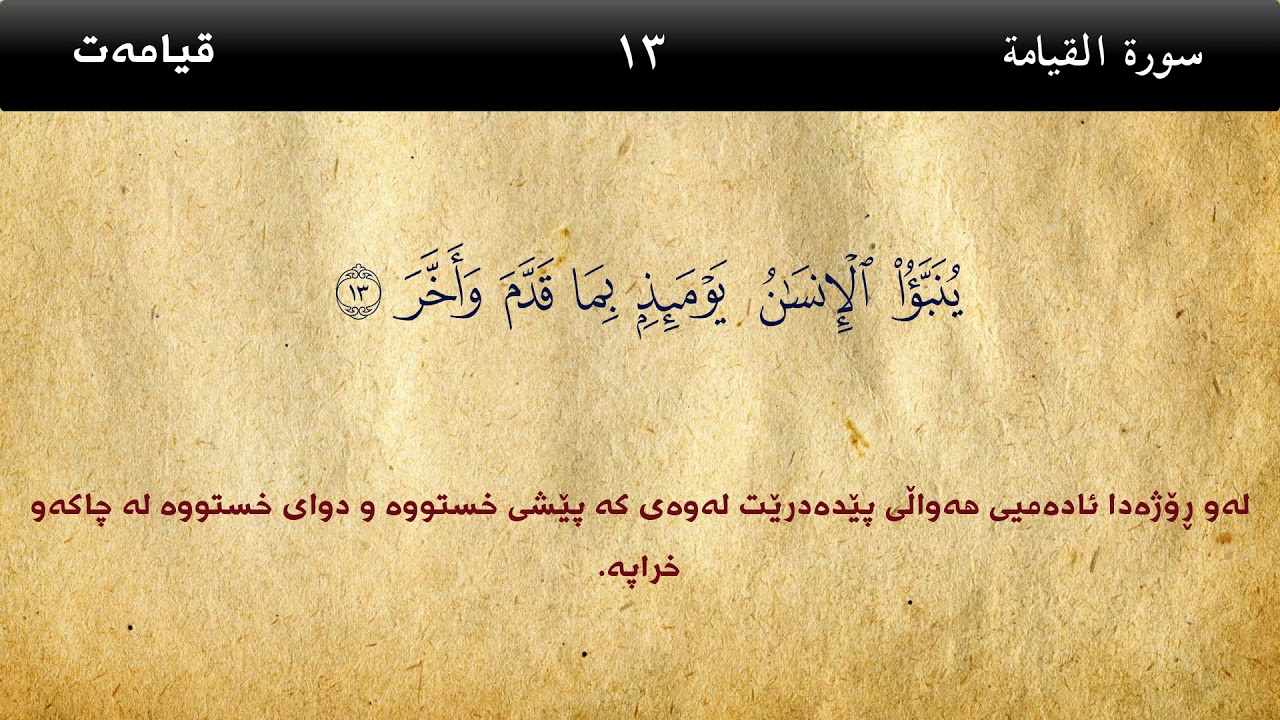 سورة القيامة ١٣ قيامەت
يُنَبَّؤُا۟ ٱلْإِنسَـٰنُ يَوْمَئِذٍۭ بِمَا قَدَّمَ وَأَخَّرَ ١٣
لەو ڕۆژەدا ئادەمیی هەواڵی پێدەدرێت لەوەی کە پێشی خستووە و دوای خستووە لە چاکەو
خراپە.